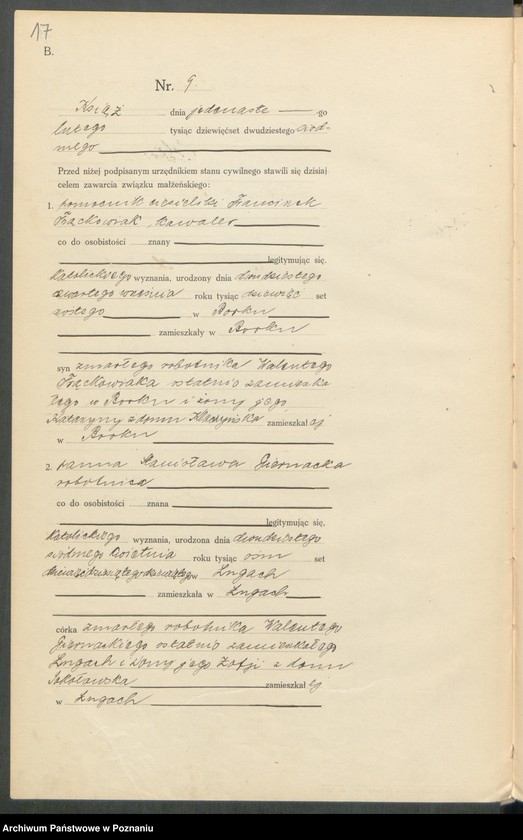 17
B.
Nr. 9.
Książ dnia jedenaste -go
lutego tysiąc dziewięćset dwudziestego siód-
mego
Przed niżej podpisanym urzędnikiem stanu cywilnego stawili się dzisiaj
celem zawarcia związku małżeńskiego:
1. pomocnik ciesielski Franciszek
Frąckowiak, kawaler
co do osobistości znany
legitymując się.
katolickiego wyznania, urodzony dnia dwudziestego
czwartego września roku tysiąc dziewięć set
szóstego w Borku
zamieszkały w Borku
syn zmarłego robotnika Walentego
Frąckowiaka ostatnio zamieszka
łego w Borku i żony jego
Katarzyny z domu zamieszkał ej
w Borku
2. panna Stanisława Piernacka
robotnica
co do osobistości znana
legitymując się.
katolickiego wyznania, urodzona dnia dwudziestego
siódmego kwietnia roku tysiąc ośm set
w Ługach
zamieszkała w Ługach
córka zmarłego robotnika Walentego
Piernackiego ostatnio zamieszkałego
Ługach i żony jego Zofji z domu
Sokołowska zamieszkał ej
w Ługach
Archiwum Państwowe w Poznaniu